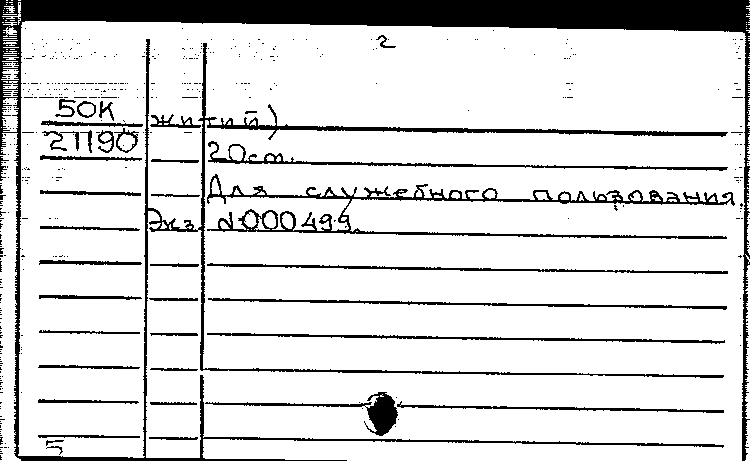 2
50К житий).
21190 20см.
Для служебного пользования.
Экз. №000499.
5